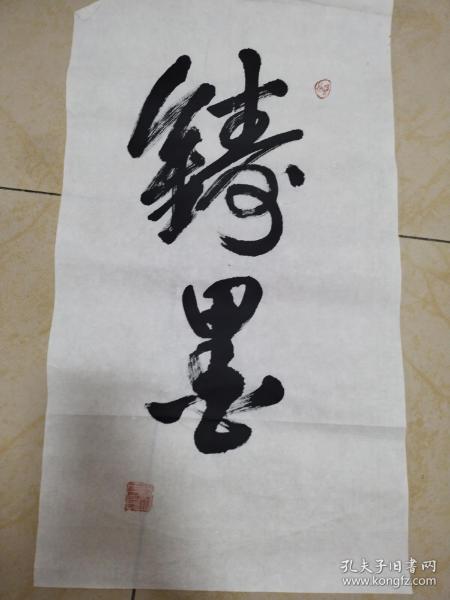 鑄
墨
孔夫子旧书网
www.kongfz.com